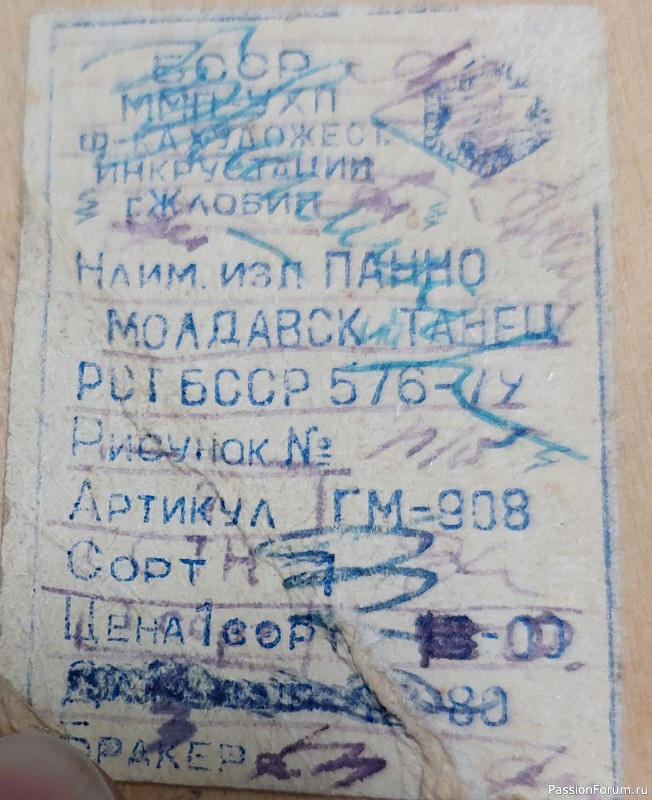 БССР
ММП УХП
Ф-КА ХУДОЖЕСТ.
ИНКРУСТАЦИИ
г. ЖЛОБИН
НАИМ. ИЗД. ПАННО
МОЛДАВСК. ТАНЕЦ
РСТ БССР 576-
РИСУНОК №
АРТИКУЛ ГМ-908
СОРТ 1
ЦЕНА 1 СОРТ -00
80
БРАКЕР
PassionForum.ru